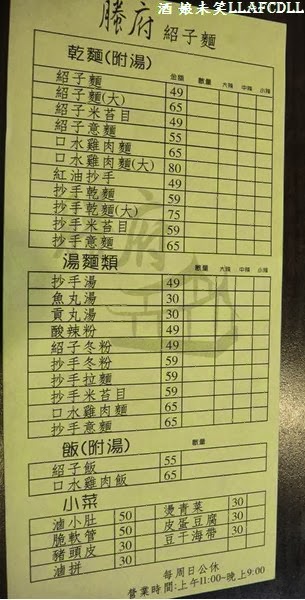 酒娘未笑LLAFCDLL
滕府 紹子麵
乾麵(附湯) 金額 數量 大辣 中辣 小辣
紹子麵 49
紹子麵(大) 65
紹子米苔目 49
紹子意麵 55
口水雞肉麵 65
口水雞肉麵(大) 80
紅油抄手 49
抄手乾麵 59
抄手乾麵(大) 75
抄手米苔目 59
抄手意麵 65
湯麵類 數量 大辣 中辣 小辣
抄手湯 49
魚丸湯 30
貢丸湯 30
酸辣粉 49
紹子冬粉 49
抄手冬粉 59
抄手拉麵 59
抄手米苔目 59
口水雞肉麵 65
抄手意麵 65
飯(附湯) 數量
紹子飯 55
口水雞肉飯 65
小菜
滷小肚 50 燙青菜 30
脆軟管 50 皮蛋豆腐 30
豬頭皮 30 豆干海帶 30
滷拼 50
每周日公休
營業時間:上午11:00-晚上9:00